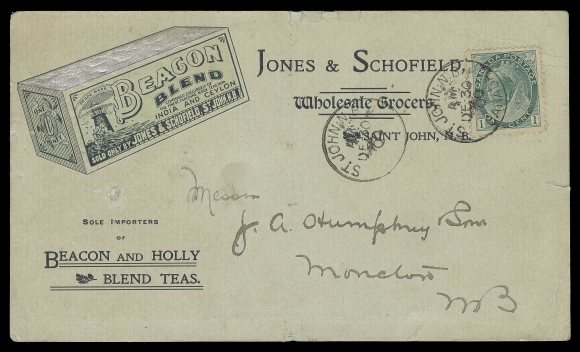 TRADE MARK
BEACON
BLEND
INDIA AND CEYLON
SOLD ONLY BY JONES & SCHOFIELD, ST. JOHN, N.B.
JONES & SCHOFIELD,
Wholesale Grocers,
SAINT JOHN, N.B.
CANADA POSTAGE
1 ONE CENT 1
ST. JOHN, N.B.
AM
DE 30
00
CANADA
ST. JOHN, N.B.
DE 30
00
Messrs
J. A. Humphrey Sons
Moncton
NB
SOLE IMPORTERS
OF
BEACON AND HOLLY
BLEND TEAS.